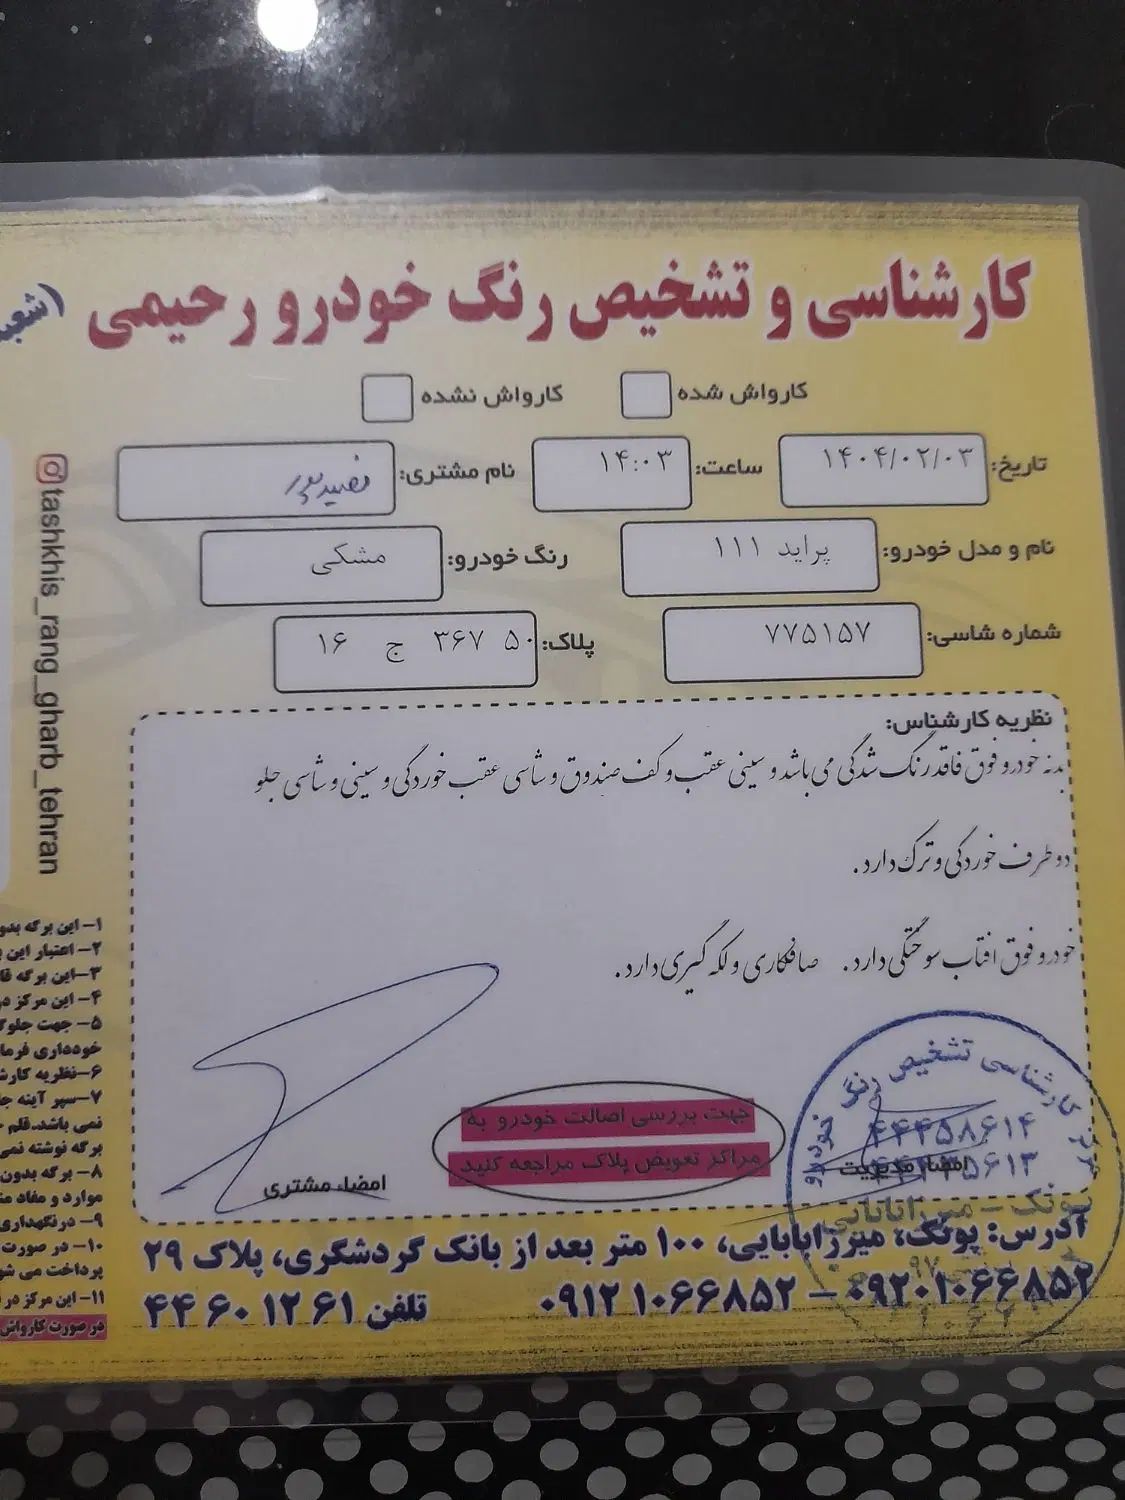 کارشناسی و تشخیص رنگ خودرو رحیمی
کارواش شده کارواش نشده
تاریخ: ۱۴۰۴/۰۲/۰۳ ساعت: ۱۴:۰۳ نام مشتری:
نام و مدل خودرو: پراید ۱۱۱ رنگ خودرو: مشکی
شماره شاسی: ۷۷۵۱۵۷ پلاک: ۵۰ ۳۶۷ ج ۱۶
نظریه کارشناس:
بدنه خودرو فوق فاقد رنگ شدگی می باشد و سینی عقب و کف صندوق و شاسی عقب خوردگی و سینی و شاسی جلو
دو طرف خوردگی و ترک دارد.
خودرو فوق افتاب سوختگی دارد. صافکاری و لکه گیری دارد.
جهت بررسی اصالت خودرو به
مراکز تعویض پلاک مراجعه کنید
امضاء مدیریت
امضاء مشتری
مرکز کارشناسی تشخیص رنگ خودرو
۴۴۴۵۸۶۱۴
پونک - میرزابابایی
آدرس: پونک، میرزابابایی، ۱۰۰ متر بعد از بانک گردشگری، پلاک ۲۹
۰۹۲۰۱۰۶۶۸۵۲ - ۰۹۱۲۱۰۶۶۸۵۲ تلفن ۴۴۶۰۱۲۶۱
tashkhis_rang_gharb_tehran
۱- این برگه بدو
۲- اعتبار این
۳-این برگه
۴- این مرکز
۵- جهت
خودداری
۶-نظریه
۷-سپر آینه
نمی باشد.قلم
برگه نوشته نمی
۸- برگه بدون
موارد و مفاد
۹- درنگهداری
۱۰- در صورت
پرداخت می
۱۱- این مرکز در
در صورت کارواش